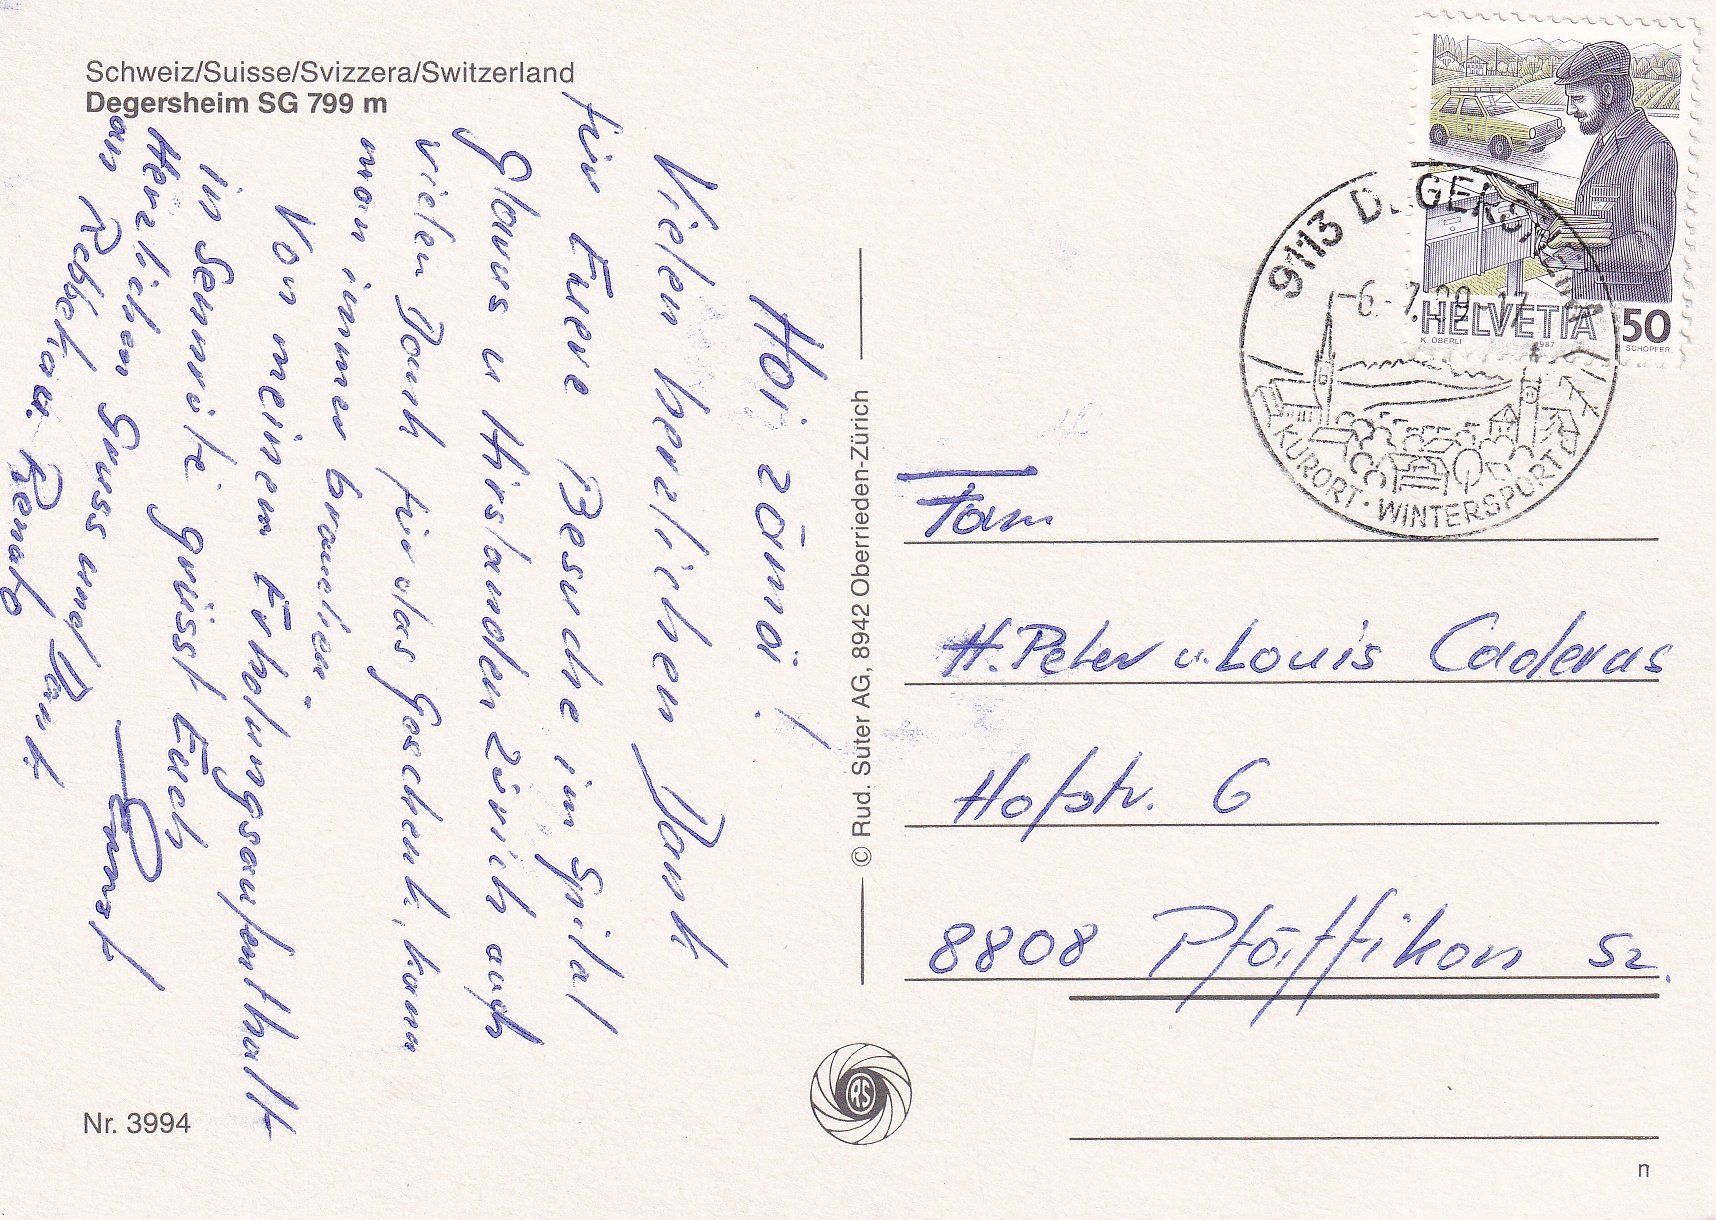 Schweiz/Suisse/Svizzera/Switzerland
Degersheim SG 799 m
Hoi zäma!
Vielen herzlichen Dank
für Euere Besuche im Spital
Glarus u Hirslanden Zürich auch
vielen Dank für das Geschenk, kann
man immer brauchen.
Von meinem Erholungsaufenthalt
in Sennrüti grüsst Euch
Herzlichen Gruss und Dank
an Rebekka u. Renato
Ernst
Nr. 3994
© Rud. Suter AG, 8942 Oberrieden-Zürich
RS
HELVETIA 50
K. OBERLI 1987 SCHOPFER
9113 DEGERSHEIM
6.-7.89-17
KURORT · WINTERSPORT
Fam
H. Peter u. Louis Caderas
Hofstr. 6
8808 Pfäffikon Sz.
n